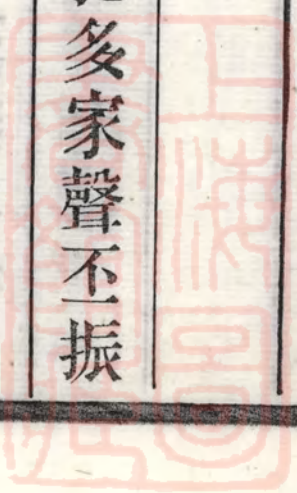 多家聲不振